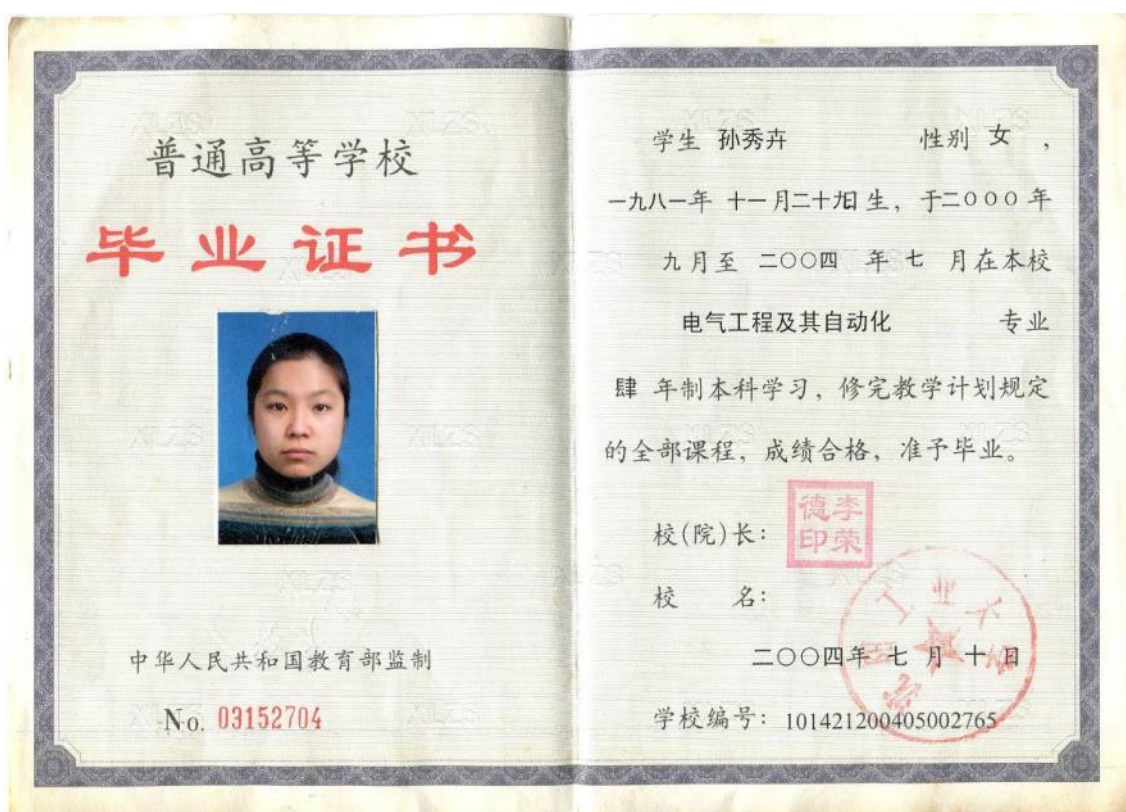 普通高等学校
毕业证书
中华人民共和国教育部监制
No. 03152704
学生 孙秀卉 性别 女 ,
一九八一年 十一月二十九日生, 于二000年
九月至 二〇〇四 年 七 月在本校
电气工程及其自动化 专业
肆 年制本科学习, 修完教学计划规定
的全部课程, 成绩合格, 准予毕业。
校(院)长:
李荣德印
校 名:
工业大
二〇〇四年 七 月 十 日
学校编号: 101421200405002765